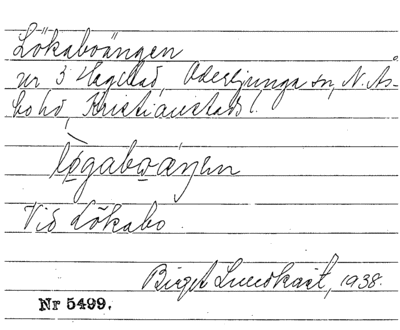 Lökaboängen
nr 3 Hagstad, Oderljunga sn, N. Ås-
bo hd, Kristianstads l.
lögaboäŋen
Vid Lökabo.
Birget Lundkvist, 1938.
Nr 5499.